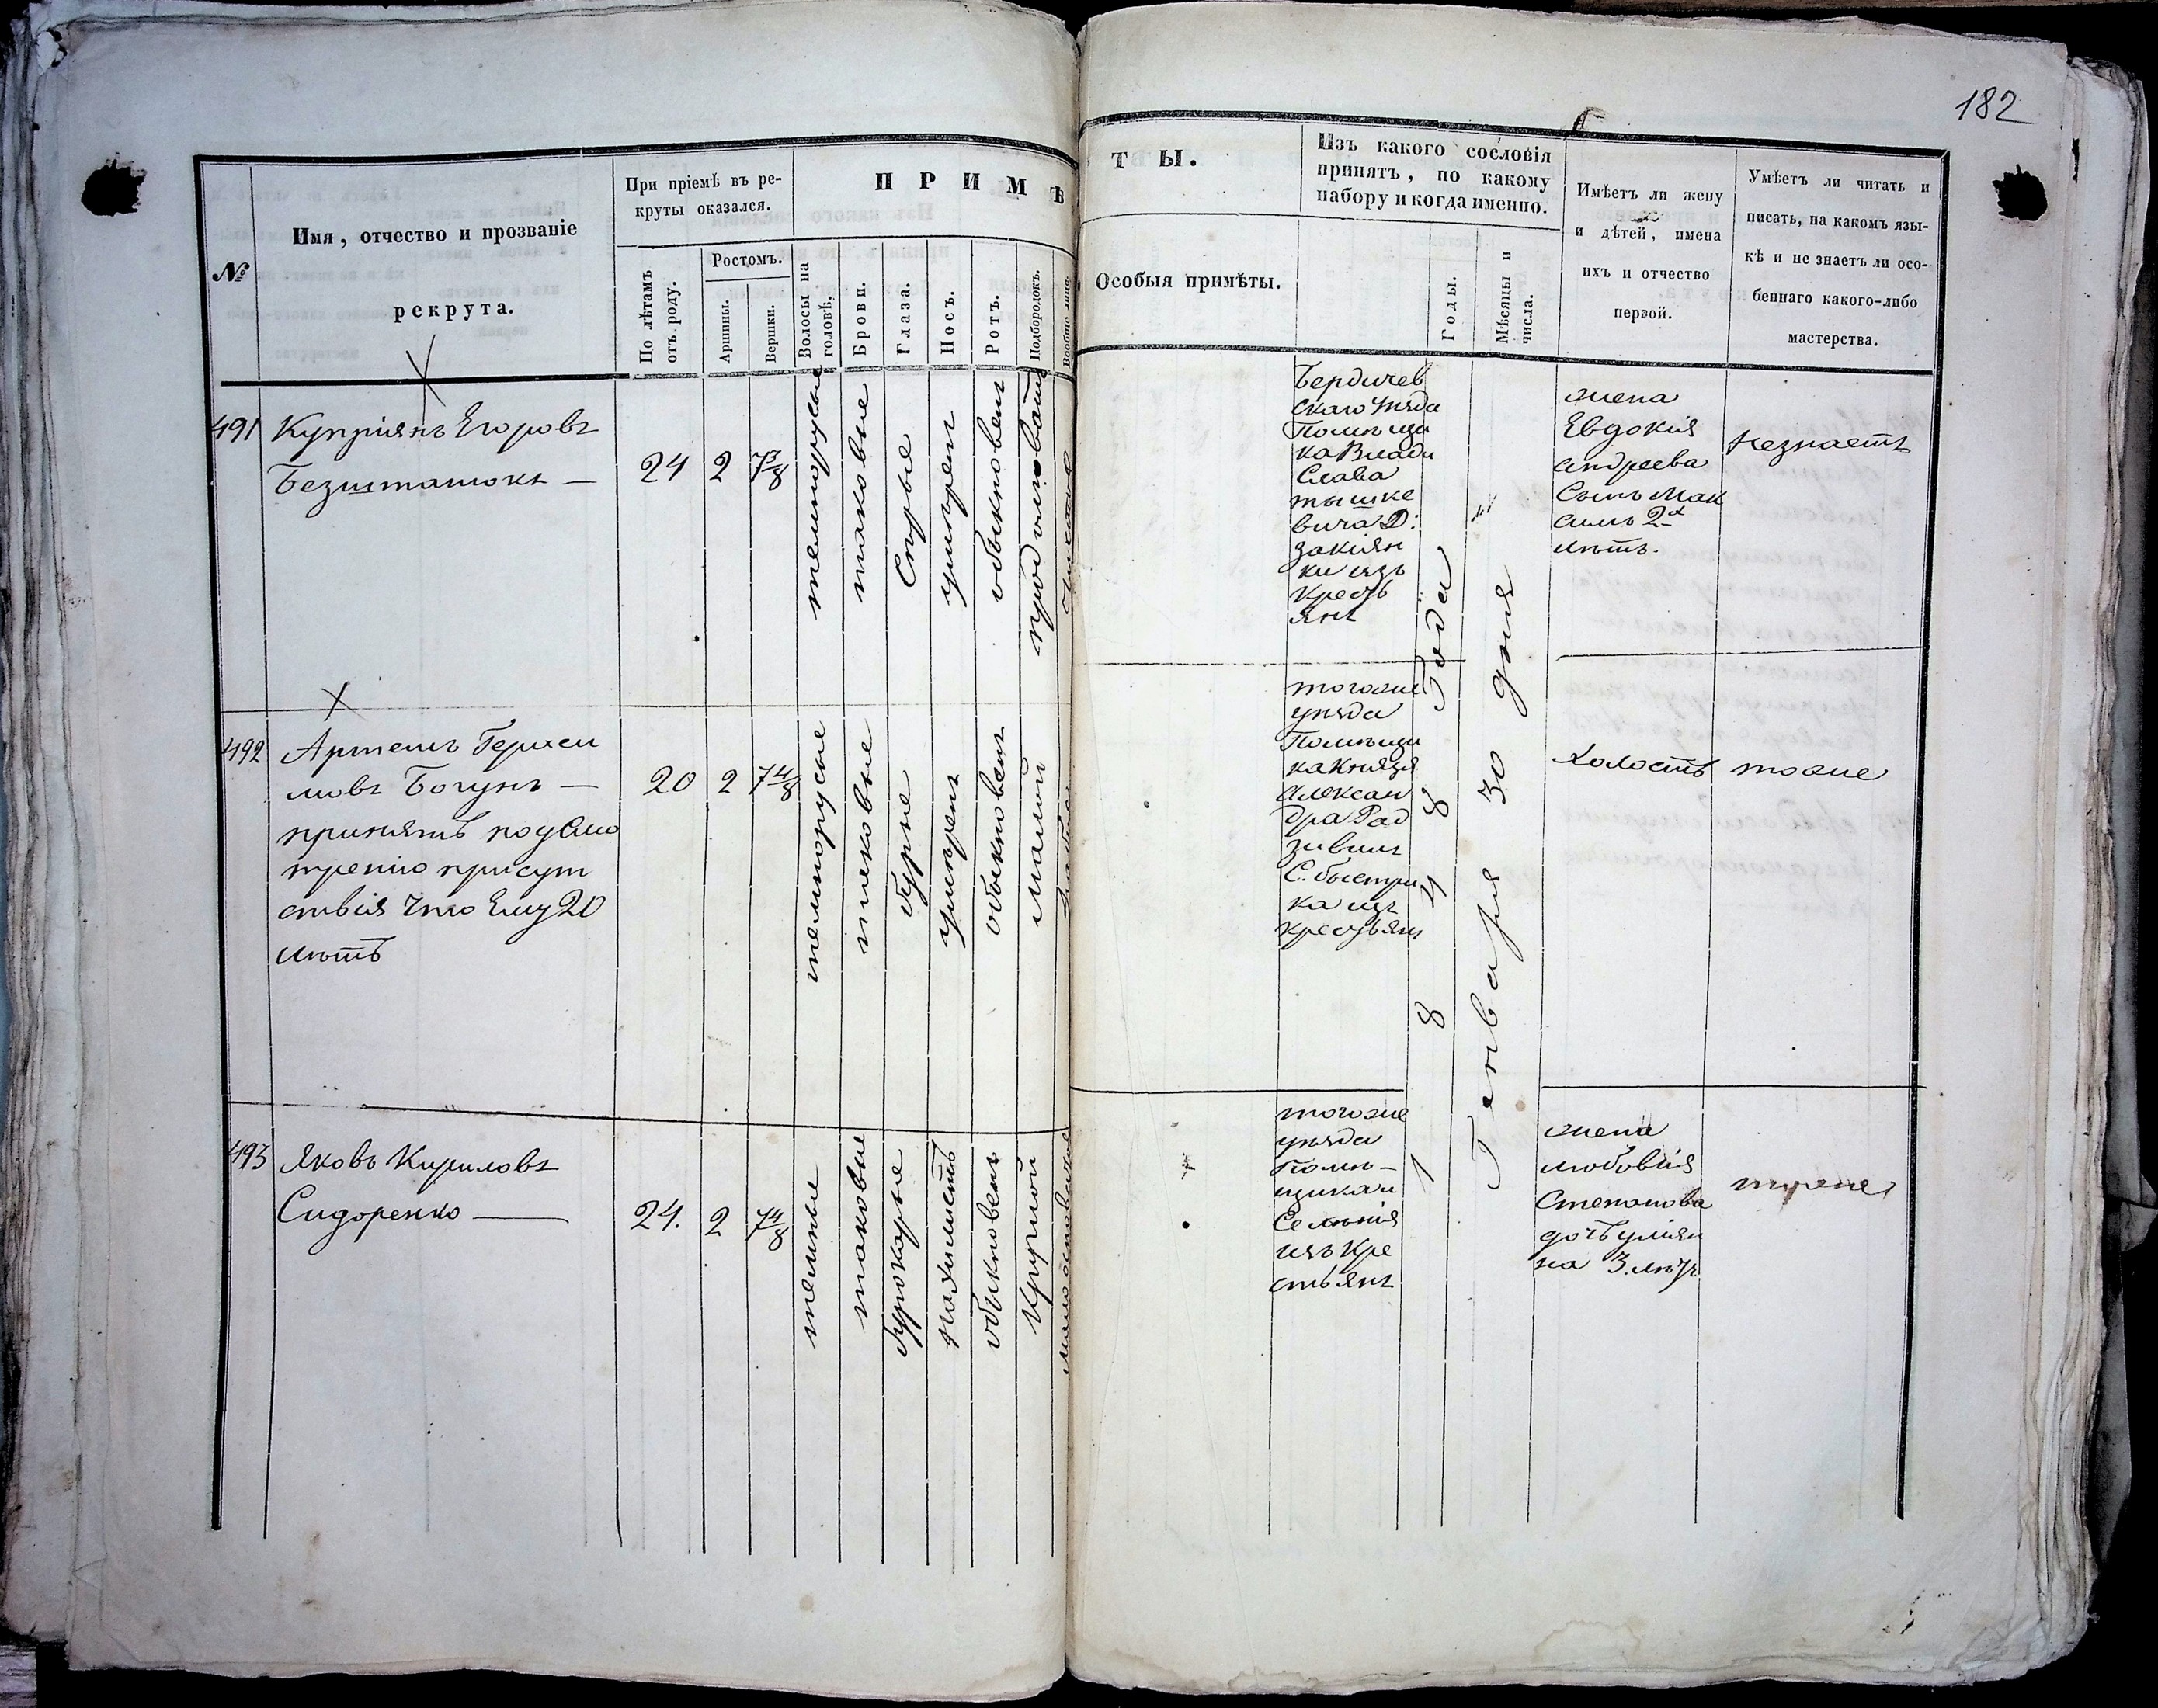 182
№
Имя, отчество и прозваніе
рекрута.
При пріемѣ въ ре-
круты оказался.
По лѣтамъ
отъ роду.
Ростомъ.
Аршины.
Вершки.
ПРИМѢ
Волосы на
головѣ.
Брови.
Глаза.
Носъ.
Ротъ.
Подбородокъ.
Вообще лице.
ТЫ.
Особыя примѣты.
Изъ какого сословія
принятъ, по какому
набору и когда именно.
Годы.
Мѣсяцы и
числа.
Имѣетъ ли жену
и дѣтей, имена
ихъ и отчество
первой.
Умѣетъ ли читать и
писать, на какомъ язы-
кѣ и не знаетъ ли осо-
беннаго какого-либо
мастерства.
491
Купріянъ Егоровъ
Безштанюкъ —
24
2
7 3/8
темнорусые
таковые
Серые
умѣрен
обыкновен
продолговатый
чистое
Бердичев
скаго уѣзда
Помѣщи
ка Влади
слава
тышке
вича Д:
закіян
ки изъ
кресть
янъ
1848 Года
Генваря 30 дня
жена
Евдокія
андреева
Сынъ Мак
симъ 2х
лѣтъ.
Незнаетъ
492
Артемъ Гераси
мовъ Богунъ —
принятъ по усмо
трению присут
ствія что Ему 20
лѣтъ
20
2
7 4/8
темнорусые
таковые
бурые
умѣрен
обыкновен
малый
тогоже
уѣзда
Помѣщи
ка Князя
Алексан
дра Рад
зивил
С. быстри
ка изъ
крестьян
холостъ
тоже
493
Яковъ Кириловъ
Сидоренко —
24.
2
7 4/8
темные
таковые
бурокарые
обыкновен
круглой
малоосповатое
тогоже
уѣзда
Помѣ-
щика и
Селенія
изъ кре
стьянъ
жена
любовія
Степанова
дочь уліян
на 3. лѣтъ